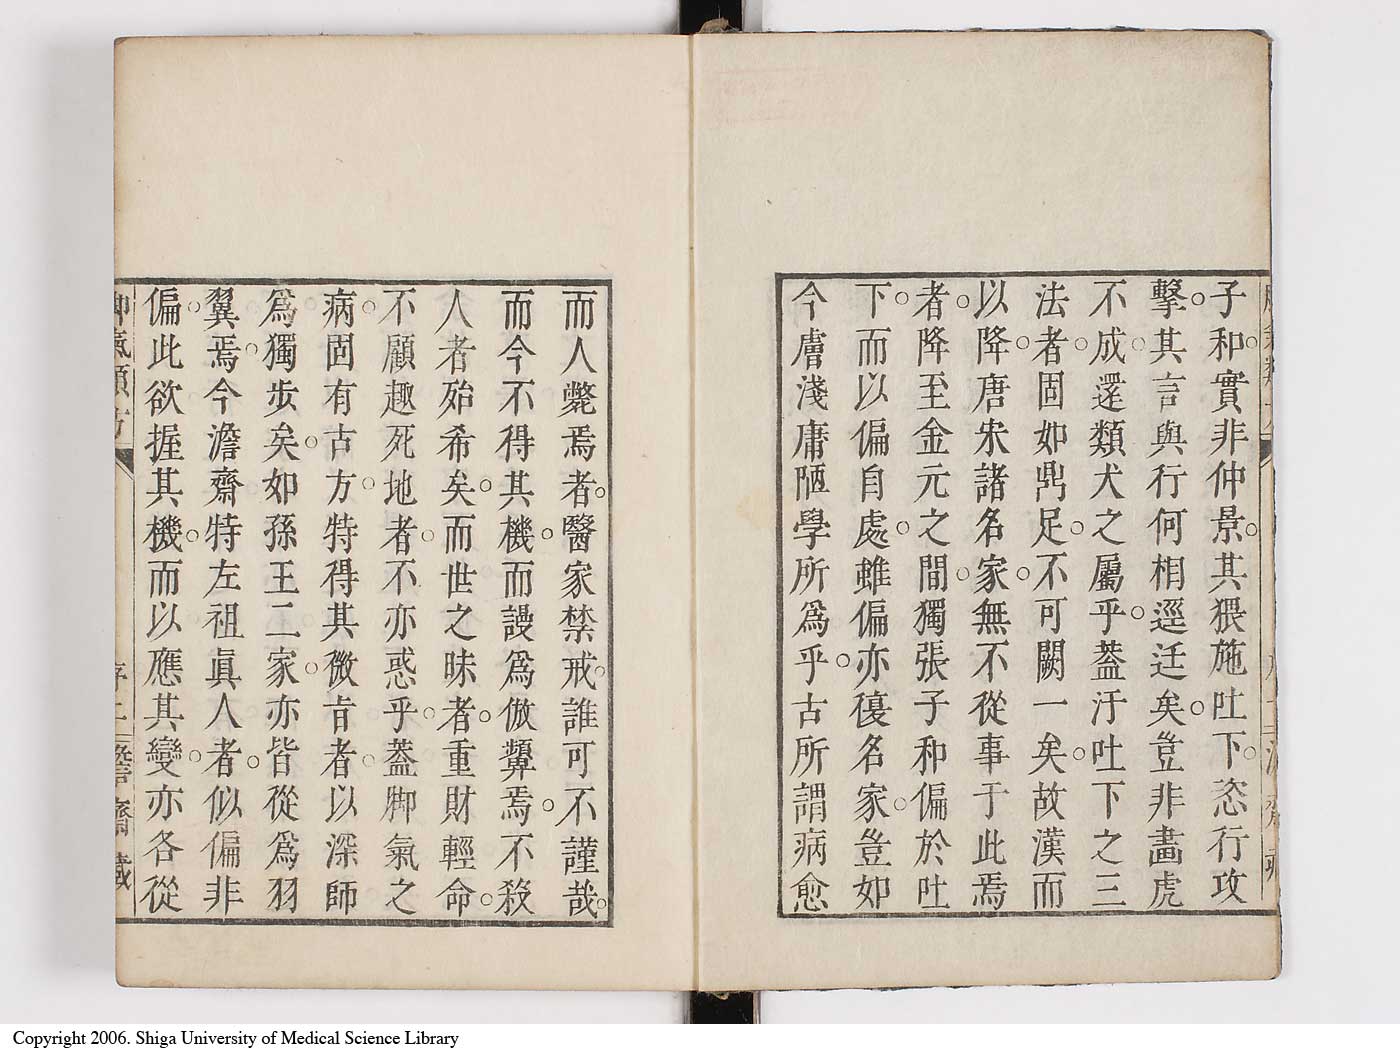 子和實非仲景其猥施吐下恣行攻
擊其言與行何相逕迋矣豈非畫虎
不成還類犬之屬乎蓋汗吐下之三
法者固如鼎足不可闕一矣故漢而
以降唐宋諸名家無不從事于此焉
者降至金元之間獨張子和偏於吐
下而以偏自處雖偏亦復名家豈如
今膚淺庸陋學所爲乎古所謂病愈
而人斃焉者醫家禁戒誰可不謹哉
而今不得其機而謾爲倣顰焉不殺
人者殆希矣而世之昧者重財輕命
不顧趣死地者不亦惑乎蓋脚氣之
病固有古方特得其微旨者以深師
爲獨步矣如孫王二家亦皆從爲羽
翼焉今澹齋特左祖眞人者似偏非
偏此欲握其機而以應其變亦各從
脚氣類方
序二
澹齋藏
Copyright 2006. Shiga University of Medical Science Library